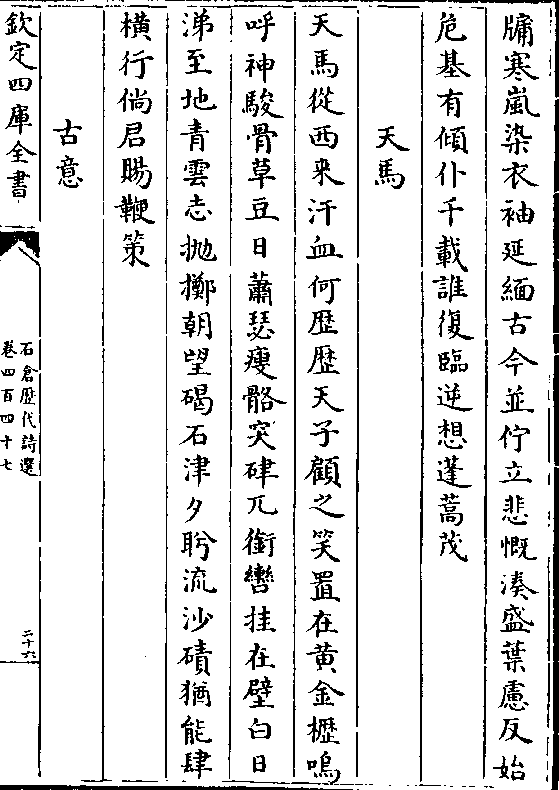 牗寒嵐染衣袖延緬古今並佇立悲慨湊盛葉慮反始
危基有傾仆千載誰復臨逆想蓬蒿茂
天馬
天馬從西來汗血何歴歴天子顧之笑置在黄金櫪嗚
呼神駿骨草豆日蕭瑟瘦骼突硉兀銜轡挂在壁白日
涕至地青雲志抛擲朝望碣石津夕盻流沙磧猶能肆
横行倘君賜鞭策
古意
欽定四庫全書
石倉歴代詩選
卷四百四十七
二十六